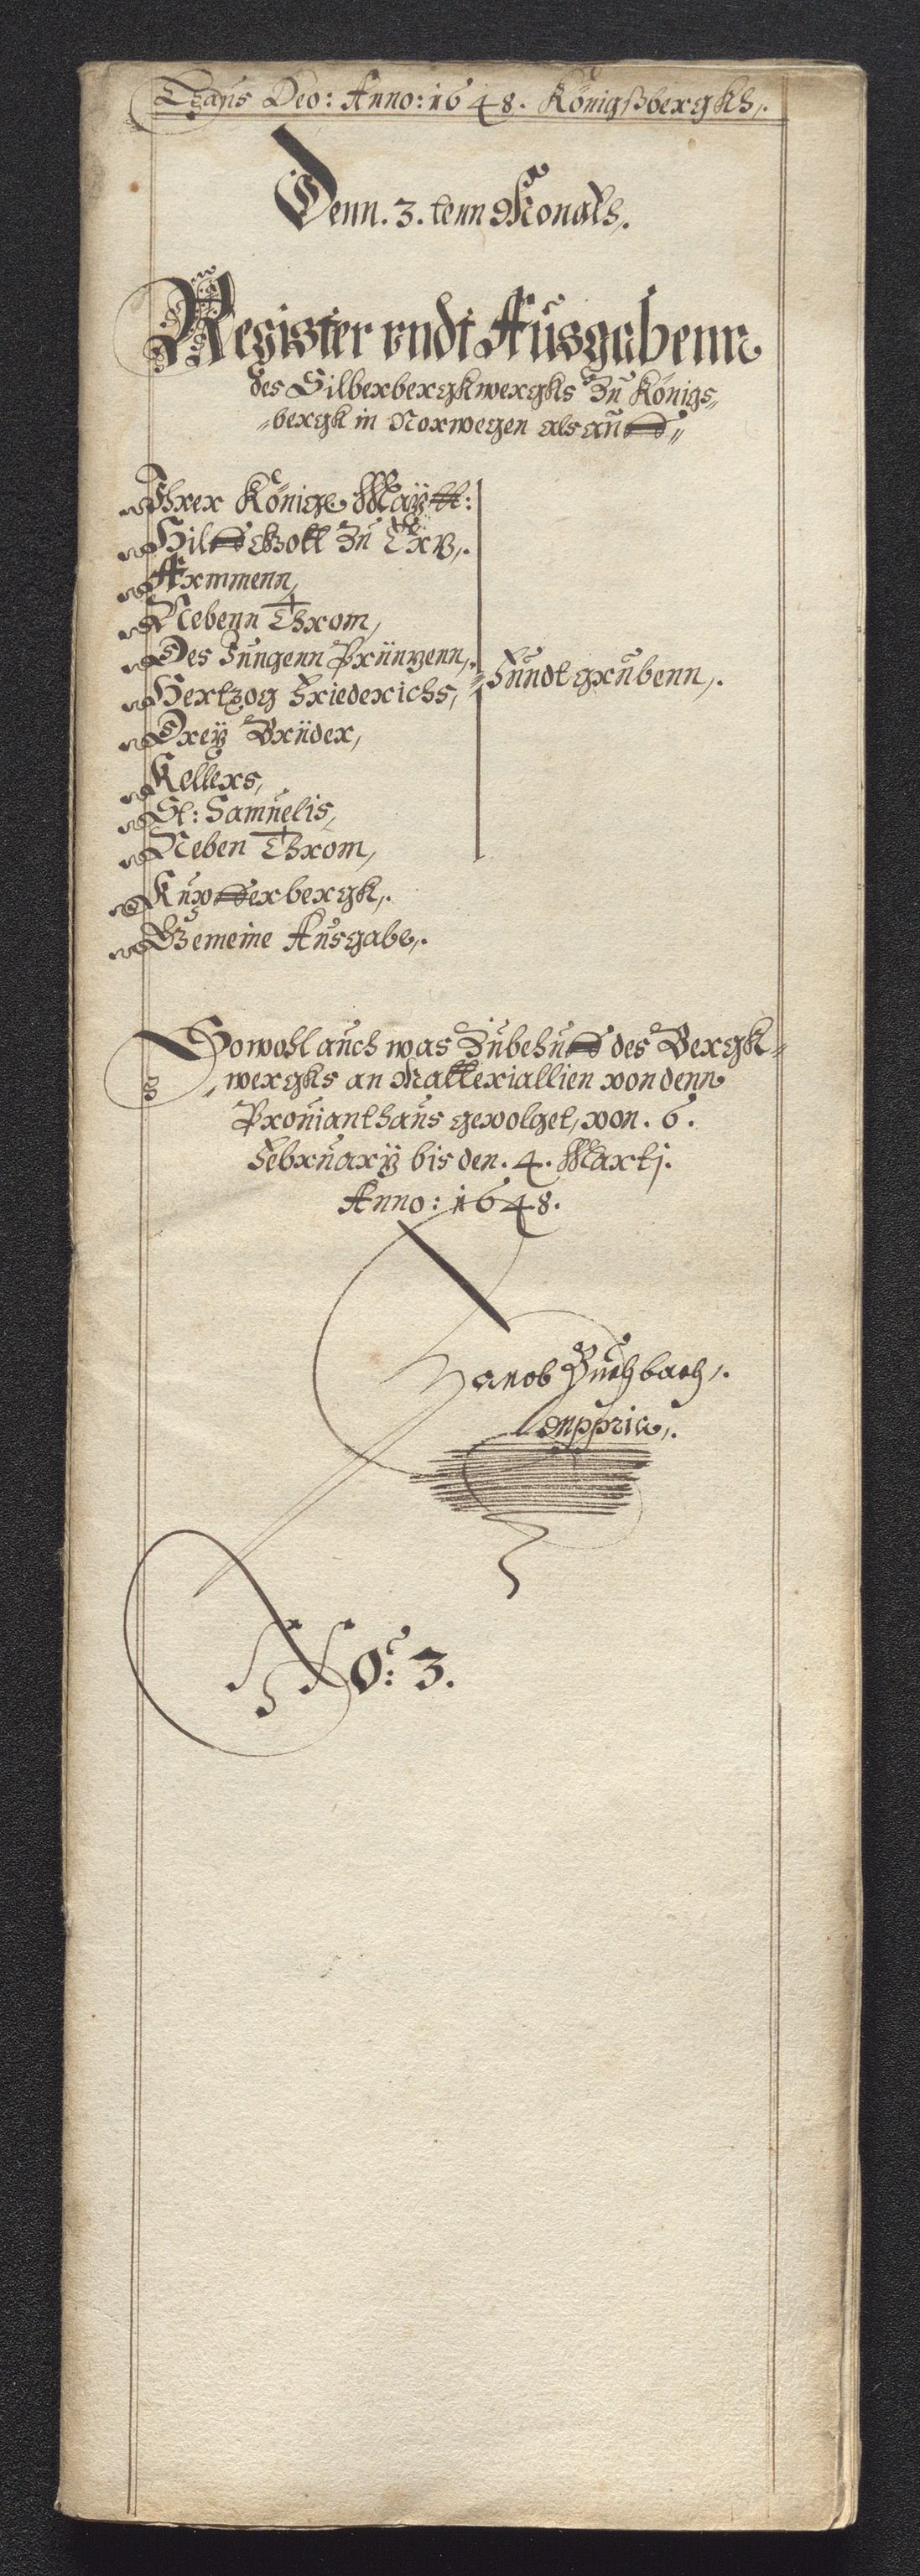 Laus Deo: Anno: 1648. Königßbergkh,.
Denn. 3. tenn Monaths,.
Register vndt Außgabenn
des Silberbergkwergks Zu Königs„
„bergk in Norwegen als auff„
Ihrer Königl Maÿtt:
Hilff Gott Zu Ertz,.
Armmenn,
Nebenn Throm,
Des Jungenn Printzenn,.
Hertzog Friederichs,
Dreÿ Brüder,
Kellers,
St: Samuelis,
Neben Throm,
Fundtgrubenn,.
Kupfferbergk,.
Gemeine Ausgabe,.
Sowohl auch was Zubehuff des Bergk„
wergks an Matteriallien von denn
Prouianthaus gevolget, von. 6.
Februarÿ bis den. 4. Martj.
Anno: 1648.
Jacob Buchbach,.
mppria,.
No: 3.